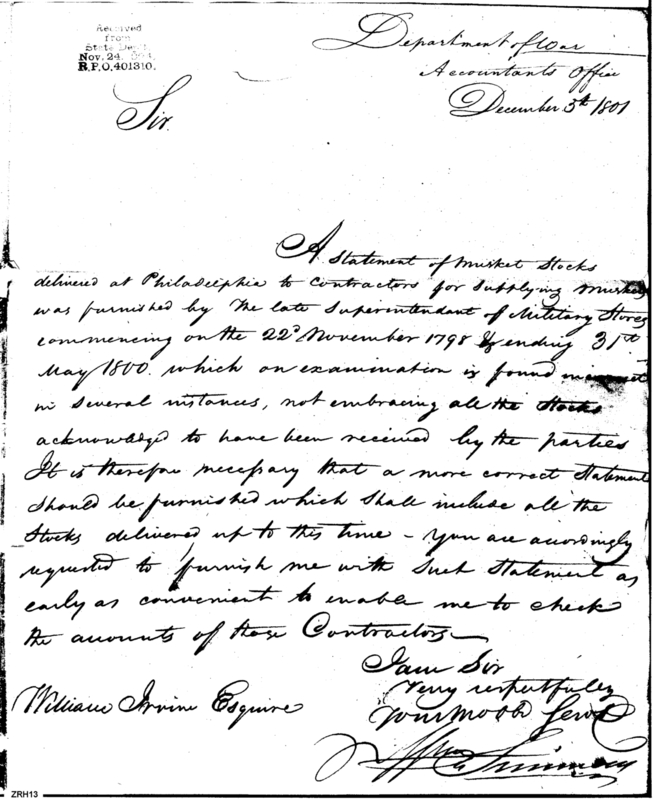 Received
from
State Dept.
Nov. 24,
R.P.O. 401310.
Department of War
Accountants Office
December 3th 1801
Sir.
A Statement of Musket Stocks
delivered at Philadelphia to Contractors for Supplying Muskets
was furnished by the late Superintendant of Military Stores
commencing on the 22d November 1798 & ending 31st
May 1800. which on examination is found
in several instances, not embracing all the Stocks
acknowledgd to have been received by the parties
It is therefore necessary that a more correct Statement
should be furnished which shall include all the
Stocks delivered up to this time – You are accordingly
requested to furnish me with Such Statement as
early as convenient to enable me to check
the accounts of those Contractors—
I am Sir
Very respectfully
Your Mo Ob Servt
Wm Simmons
William Irvine Esquire
ZRH13